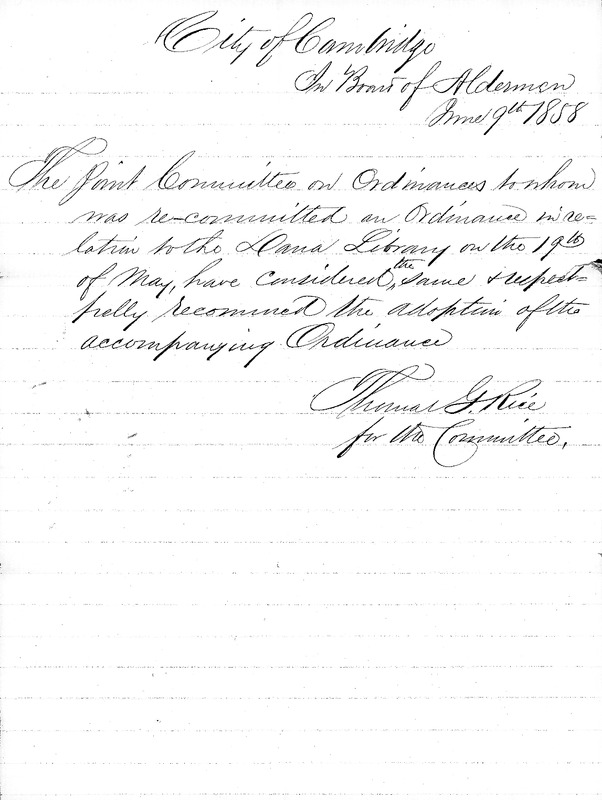 City of Cambridge
In Board of Aldermen
June 9th 1858
The Joint Committee on Ordinances to whom
was re-committed an Ordinance in re=
lation to the Dana Library on the 19th
of May, have considered, the same & respect=
fully recommend the adoption of the
accompanying Ordinance
Thomas G. Rice
for the Committee.